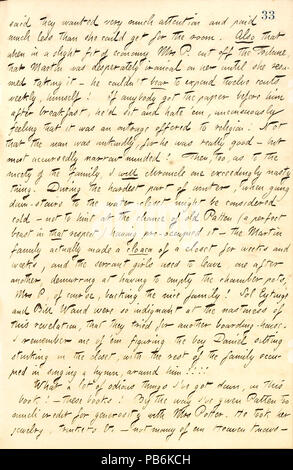 33
said they wanted very much attention and paid
much less than she could get for the room. Also that
when in a slight fit of economy Mrs P. cut off the Tribune,
that Martin was desperately ironical on her until she resu-
med taking it — he couldn't bear to expend twelve cents
weekly, himself! If anybody got the paper before him
after breakfast, he'd sit and hate 'em, unconsciously
feeling that it was an outrage offered to religion. Not
that the man was unkindly, for he was really good — but
most accursedly narrow minded! Then, too, as to the
nicety of the family, I will chronicle one exceedingly nasty
thing. During the hardest part of winter, when going
down-stairs to the water closet might be considered
cold — not to hint at the chance of old Patten (a perfect
beast in that respect) having pre-occupied it — the Martin
family actually made a cloaca of a closet for weeks and
weeks, and the servant girls used to leave one after
another, demurring at having to empty the chamber pots,
Mrs P, of course, backing the nice family! Sol Eytinge
and Bill Waud were so indignant at the nastiness of
this revelation, that they tried for another boarding-house.
I remember one of 'em figuring the boy Daniel sitting
stinking in the closet, with the rest of the family occu-
pied in singing a hymn, around him!!!!
What a lot of odious things I've got down, in this
book! — these books! By the way I've given Patten too
much credit for generosity with Mrs Potter. He took her
jewelry, trinkets &c — not many of em Heaven knows —
PB6KCH